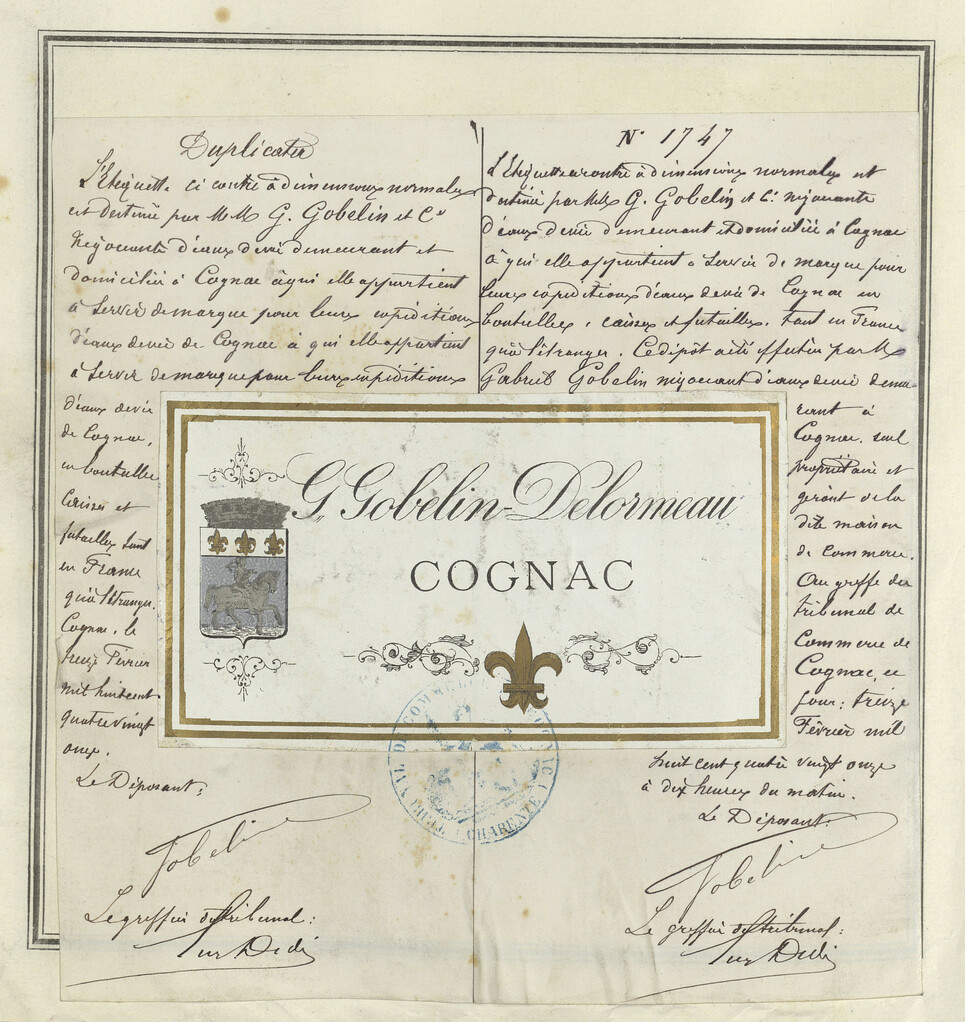 Duplicata
L'Etiquette ci contre à dimensions normales
est destinée par MM G. Gobelin et Cie
Négociants d'eaux de vie demeurant et
domiciliés à Cognac à qui elle appartient
à servir de marque pour leurs expéditions
d'eaux de vie de Cognac à qui elle appartient
à servir de marque pour leurs expéditions
d'eaux de vie
de Cognac,
en bouteilles
Caisses et
futailles tant
en France
qu'à l'étranger.
Cognac, le
treize Février
mil huit cent
quatre vingt
onze.
Le Déposant:
Gobelin
Le greffier du tribunal:
N° 1747
L'Etiquette ci contre à dimensions normales est
destinée par MM G. Gobelin et Cie négociants
d'eaux de vie demeurant et domiciliés à Cognac
à qui elle appartient à servir de marque pour
leurs expéditions d'eaux de vie de Cognac en
bouteilles, caisses et futailles, tant en France
qu'à l'étranger. Ce dépôt a été effectué par M
Gabriel Gobelin négociant d'eaux de vie demeu-
rant à
Cognac, seul
propriétaire et
gérant de la
dite maison
de commerce.
Au greffe du
tribunal de
Commerce de
Cognac, ce
jour: treize
Février mil
huit cent quatre vingt onze
à dix heures du matin.
Le Déposant:
Gobelin
Le greffier du tribunal:
G. Gobelin-Delormeau
COGNAC
TRIBUNAL DE COMMERCE COGNAC
(CHARENTE)